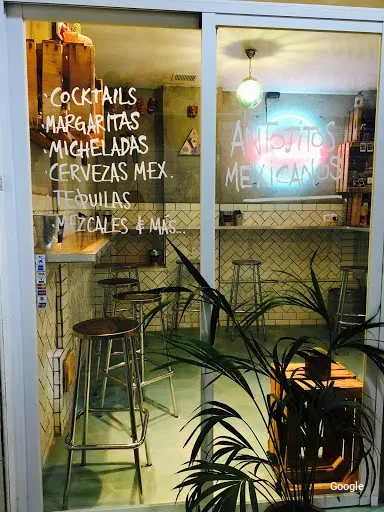 · COCKTAILS
· MARGARITAS
· MICHELADAS
· CERVEZAS MEX.
· TEQUILAS
· MEZCALES & MÁS...
ANTOJITOS
MEXICANOS
Google